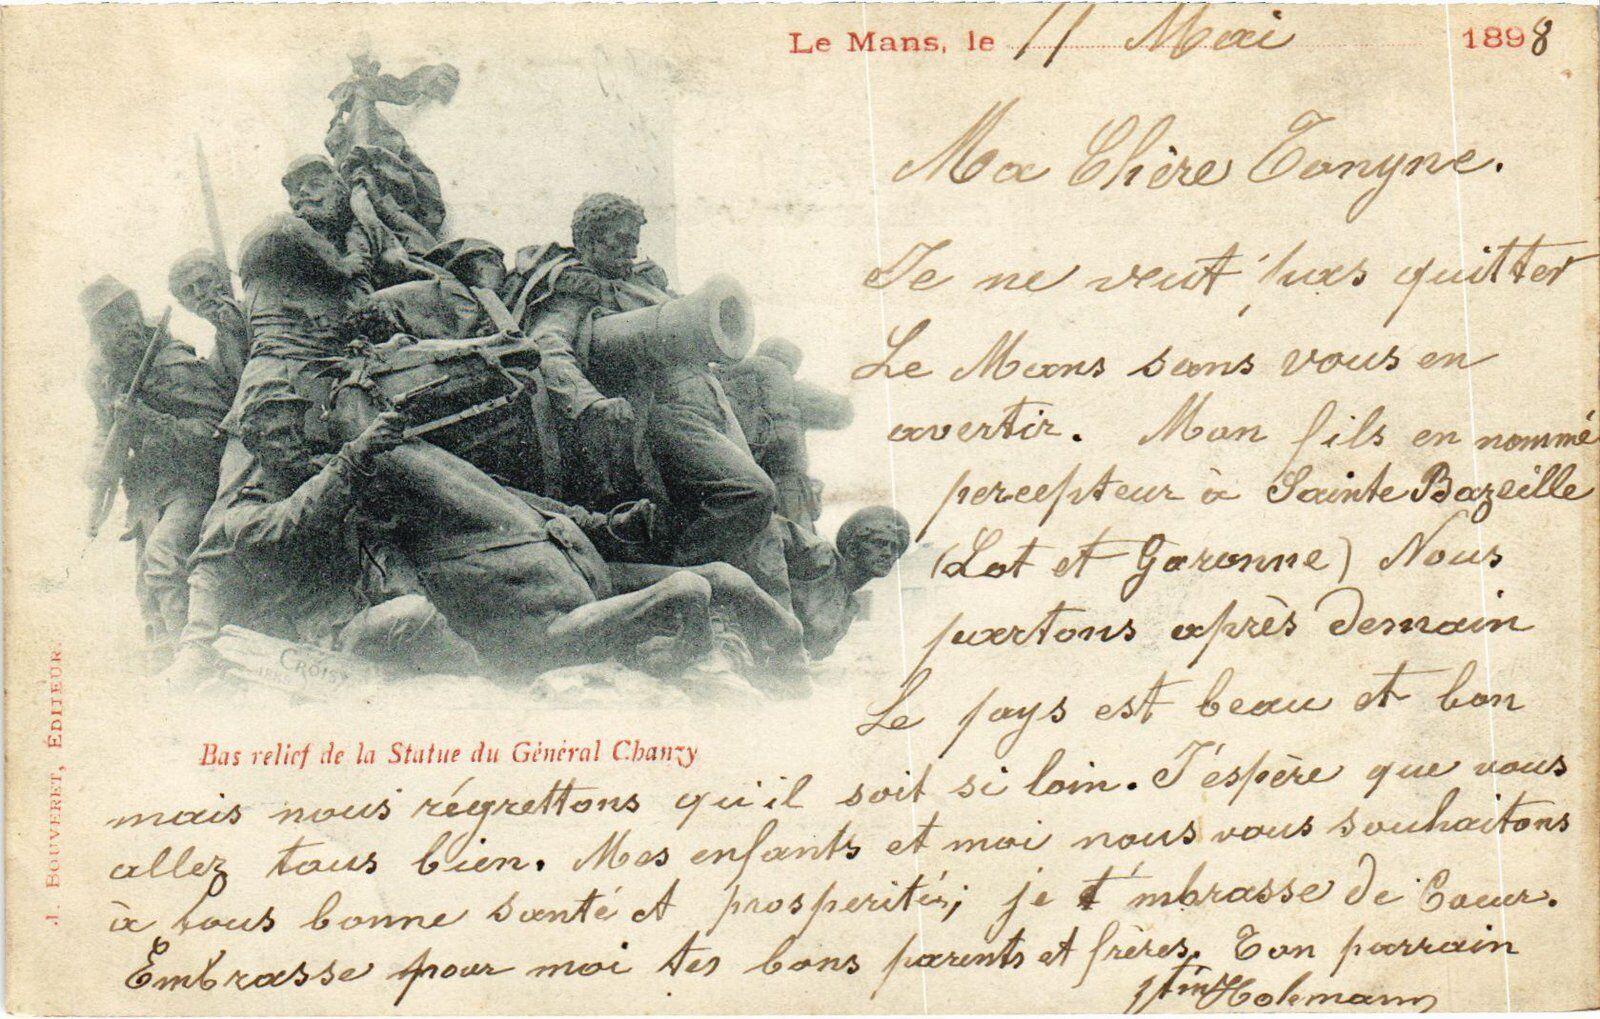 Le Mans, le 11 Mai 1898
Ma Chère Tonyne.
Je ne veut pas quitter
Le Mans sans vous en
avertir. Mon fils en nommé
percepteur à Sainte Bazeille
(Lot et Garonne) Nous
partons après demain
Le pays est beau et bon
mais nous régrettons qu'il soit si loin. J'espère que vous
allez tous bien. Mes enfants et moi nous vous souhaitons
à tous bonne santé et prosperités; je t'mbrasse de Coeur.
Embrasse pour moi tes bons parents et frères. Ton parrain
CROISY
Bas relief de la Statue du Général Chanzy
J. BOUVERET, ÉDITEUR.